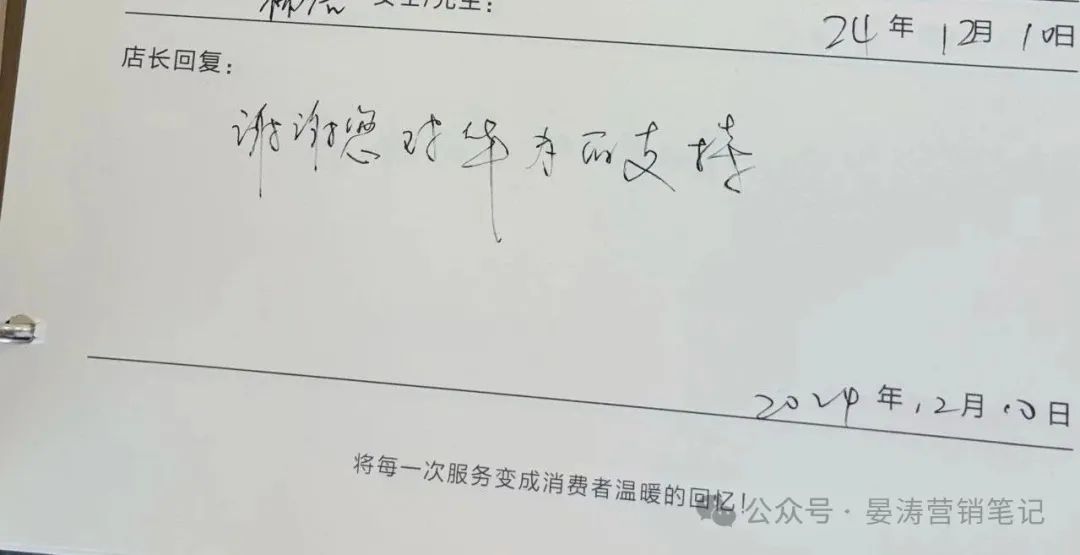 女士/先生：
24年12月10日
店长回复：
谢谢您对华为的支持
2024年12月10日
将每一次服务变成消费者温暖的回忆！
公众号·晏涛营销笔记